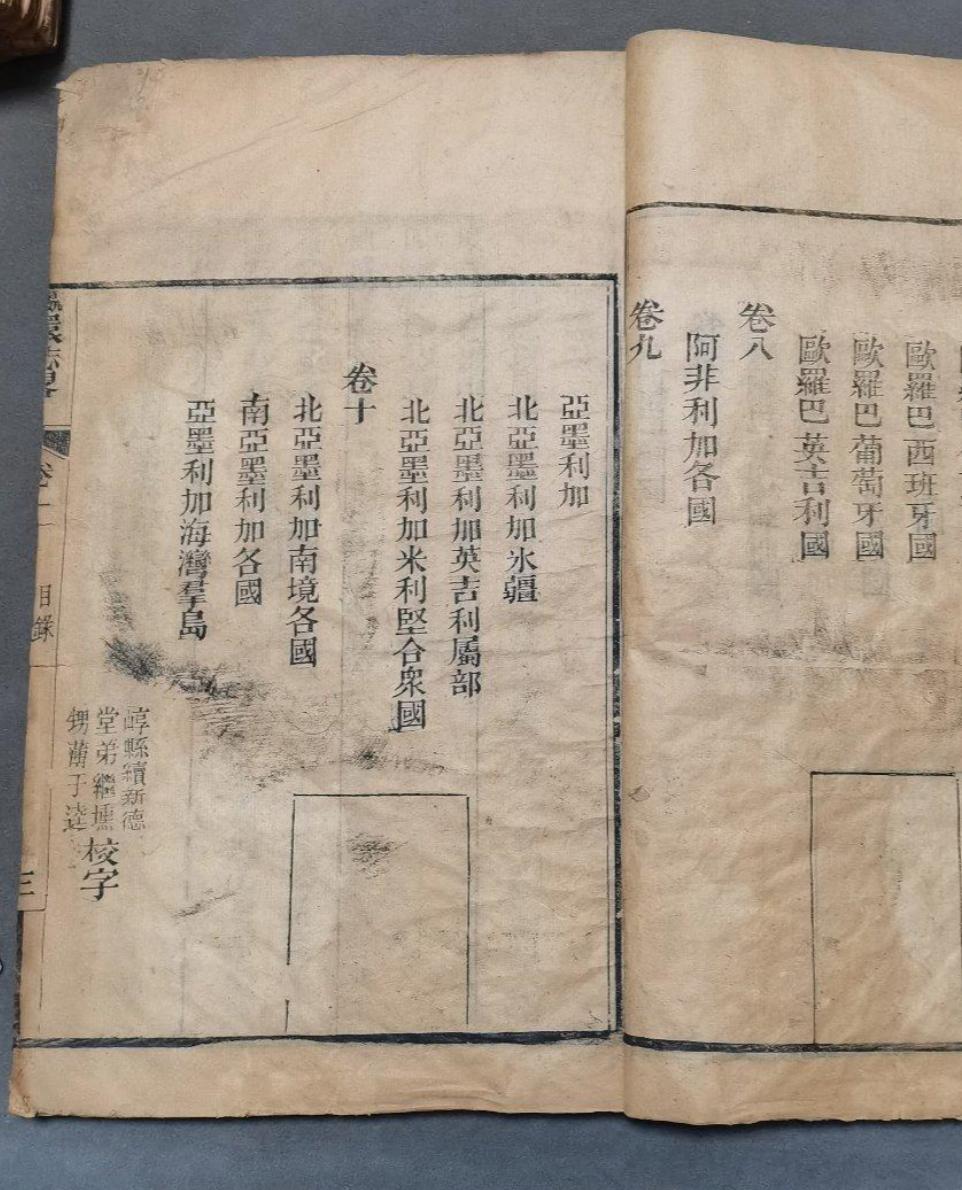 歐羅巴西班牙國
歐羅巴葡萄牙國
歐羅巴英吉利國
卷八
阿非利加各國
卷九
亞墨利加
北亞墨利加氷疆
北亞墨利加英吉利屬部
北亞墨利加米利堅合衆國
卷十
北亞墨利加南境各國
南亞墨利加各國
亞墨利加海灣羣島
崞縣續新德
堂弟繼壎
甥蘭子逵
校字
瀛寰志畧
目錄
三